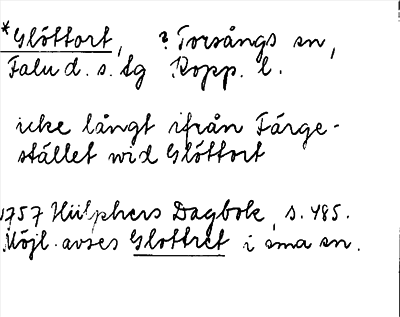 *Glöttort, ? Torsångs sn,
Falu d. s. tg Kopp. l.
icke långt ifrån Färge-
stället wid Glöttort
1757 Hülphers Dagbok, s. 485.
Möjl. avses Glottret i sma sn.